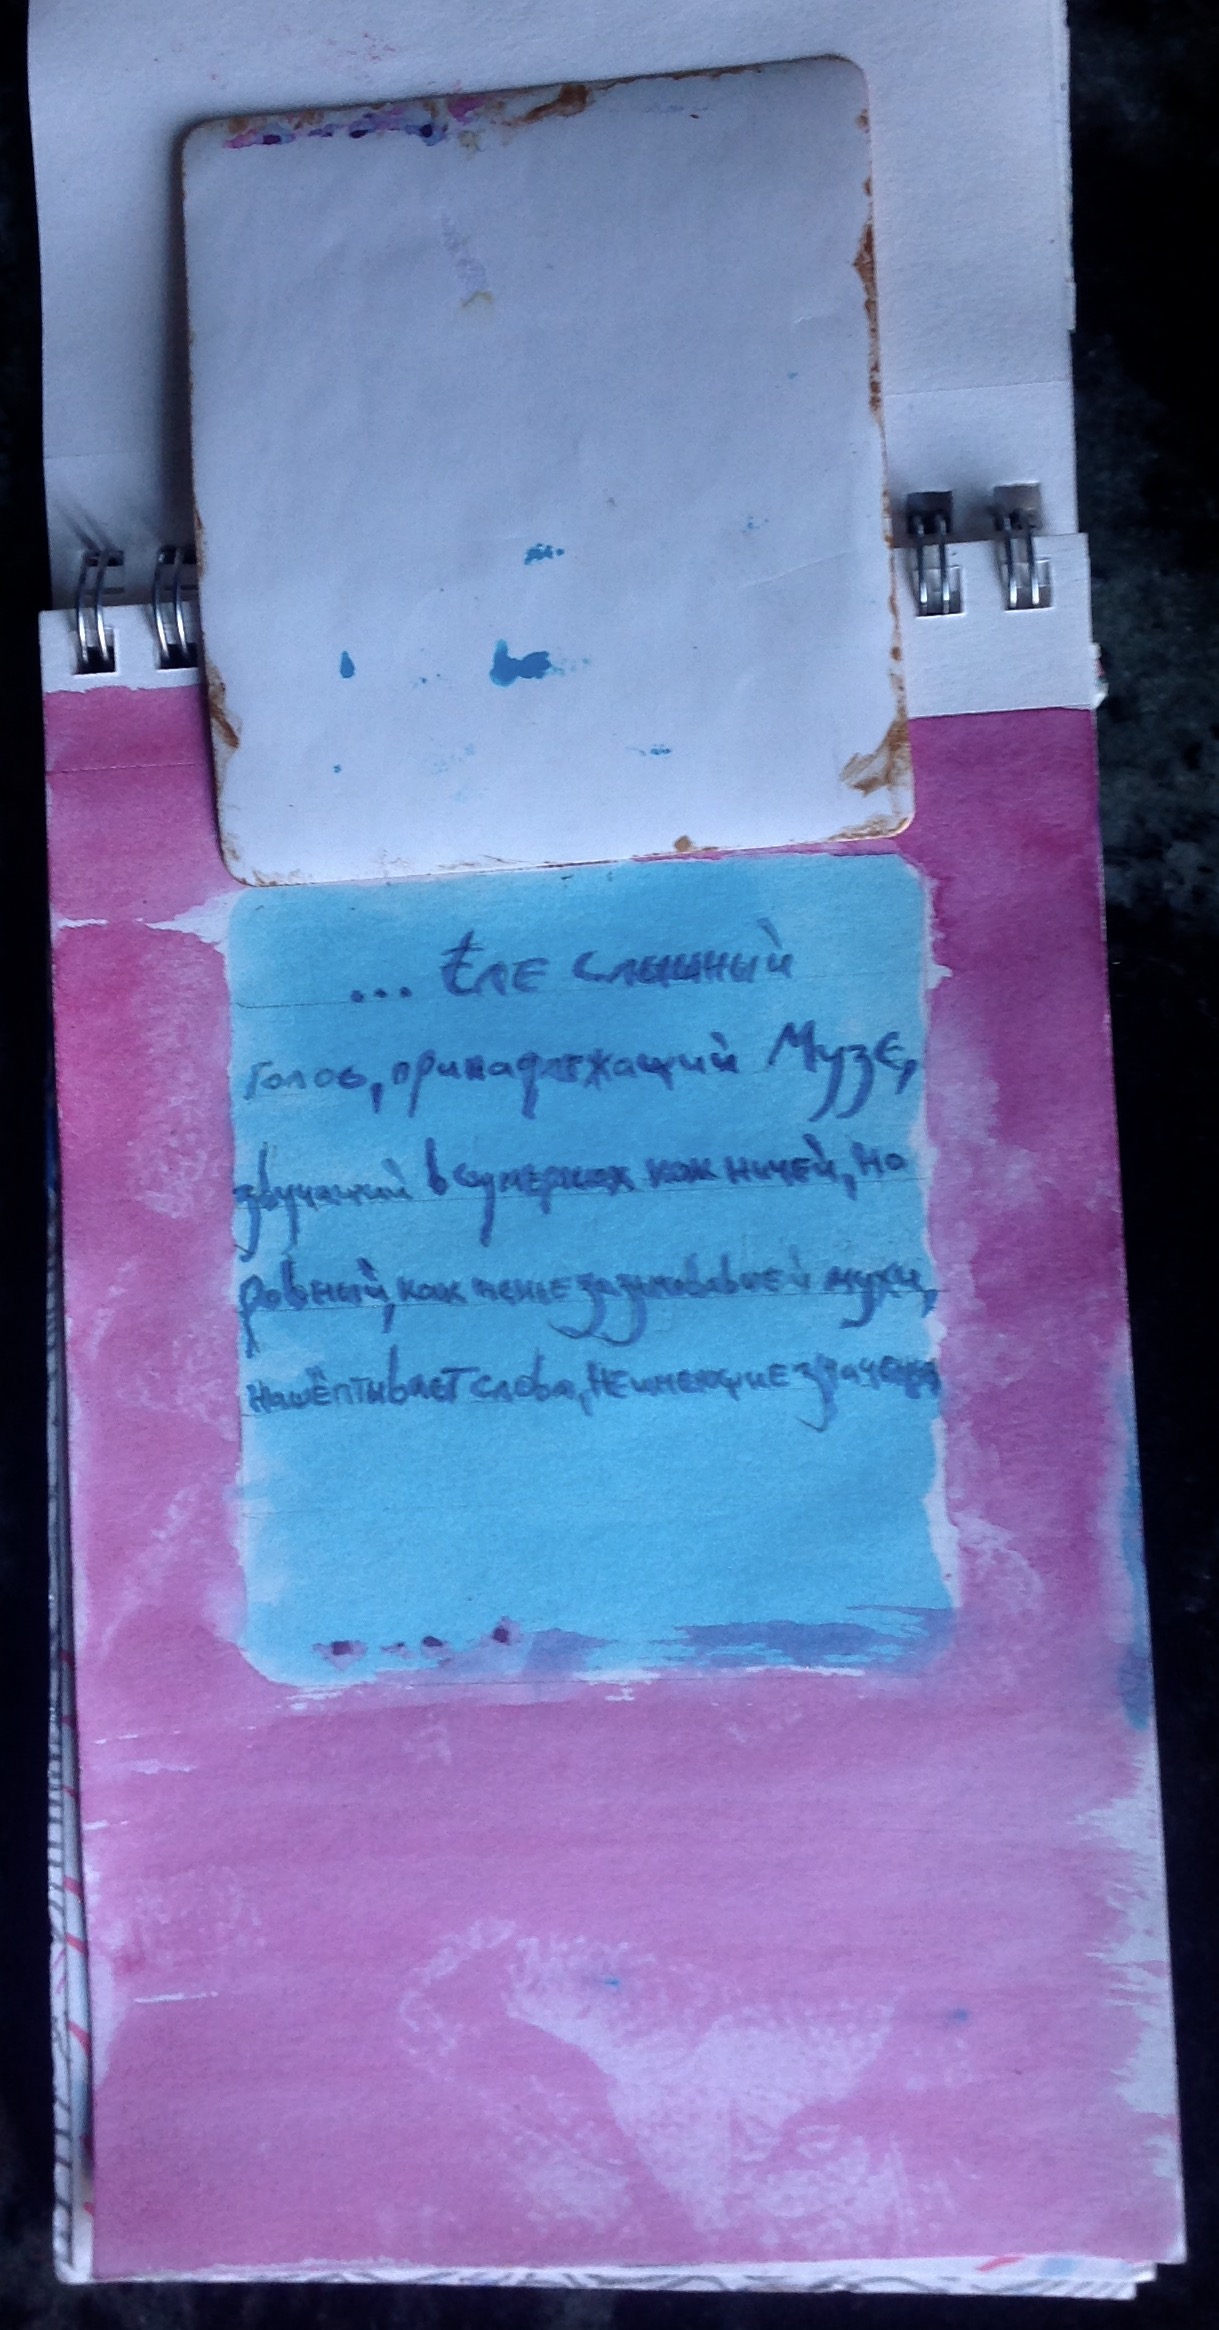 ... Еле слышный
голос, принадлежащий Музе,
звучащий в сумерках как ничей, но
ровный, как пенье зазимовавшей мухи,
нашёптывает слова, не имеющие значенья